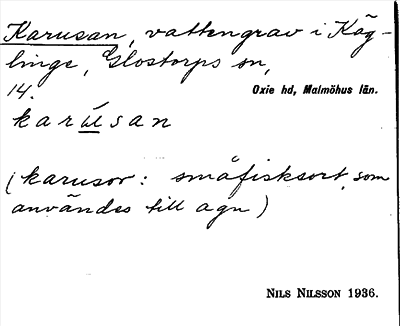 Karusan, vattengrav i Käg-
linge, Glostorps sn,
14.
Oxie hd, Malmöhus län.
karúsan
(karusor: småfisksort, som
användes till agn)
NILS NILSSON 1936.